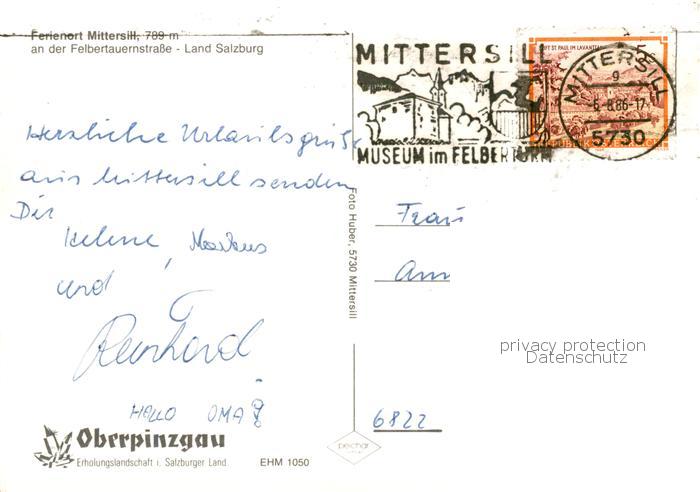 Ferienort Mittersill, 789 m
an der Felbertauernstraße - Land Salzburg
MITTERSILL
MUSEUM im FELBERTURM
STIFT ST. PAUL IM LAVANTTAL
5
REPUBLIK ÖSTERREICH
MITTERSILL
9
-6.-8.86-17
5730
Herzliche Urlaubsgrüße
aus Mittersill senden
Dir
Helene, Markus
und
Reinhard
HALLO OMA
Foto Huber, 5730 Mittersill
Frau
Am
6822
privacy protection
Datenschutz
Oberpinzgau
Erholungslandschaft i. Salzburger Land
EHM 1050